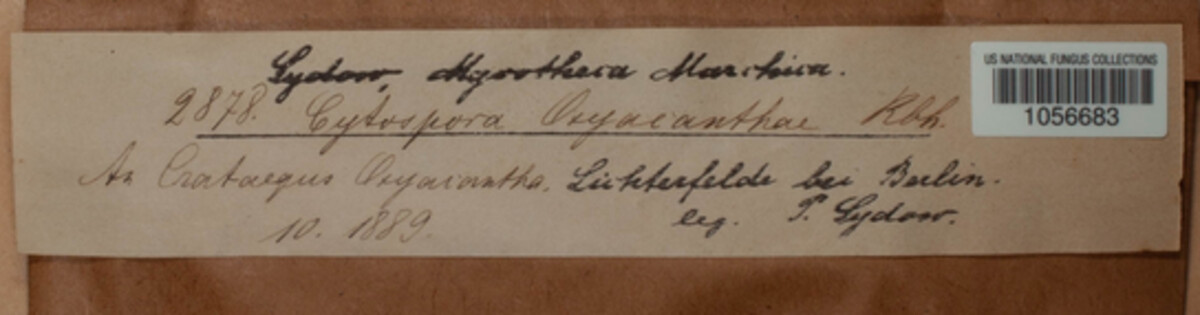 Sydow, Mycotheca Marchica.
2878. Cytospora Oxyacanthae Rbh.
An Crataegus Oxyacantha. Lichterfelde bei Berlin.
10. 1889. leg. P. Sydow.
US NATIONAL FUNGUS COLLECTIONS
1056683